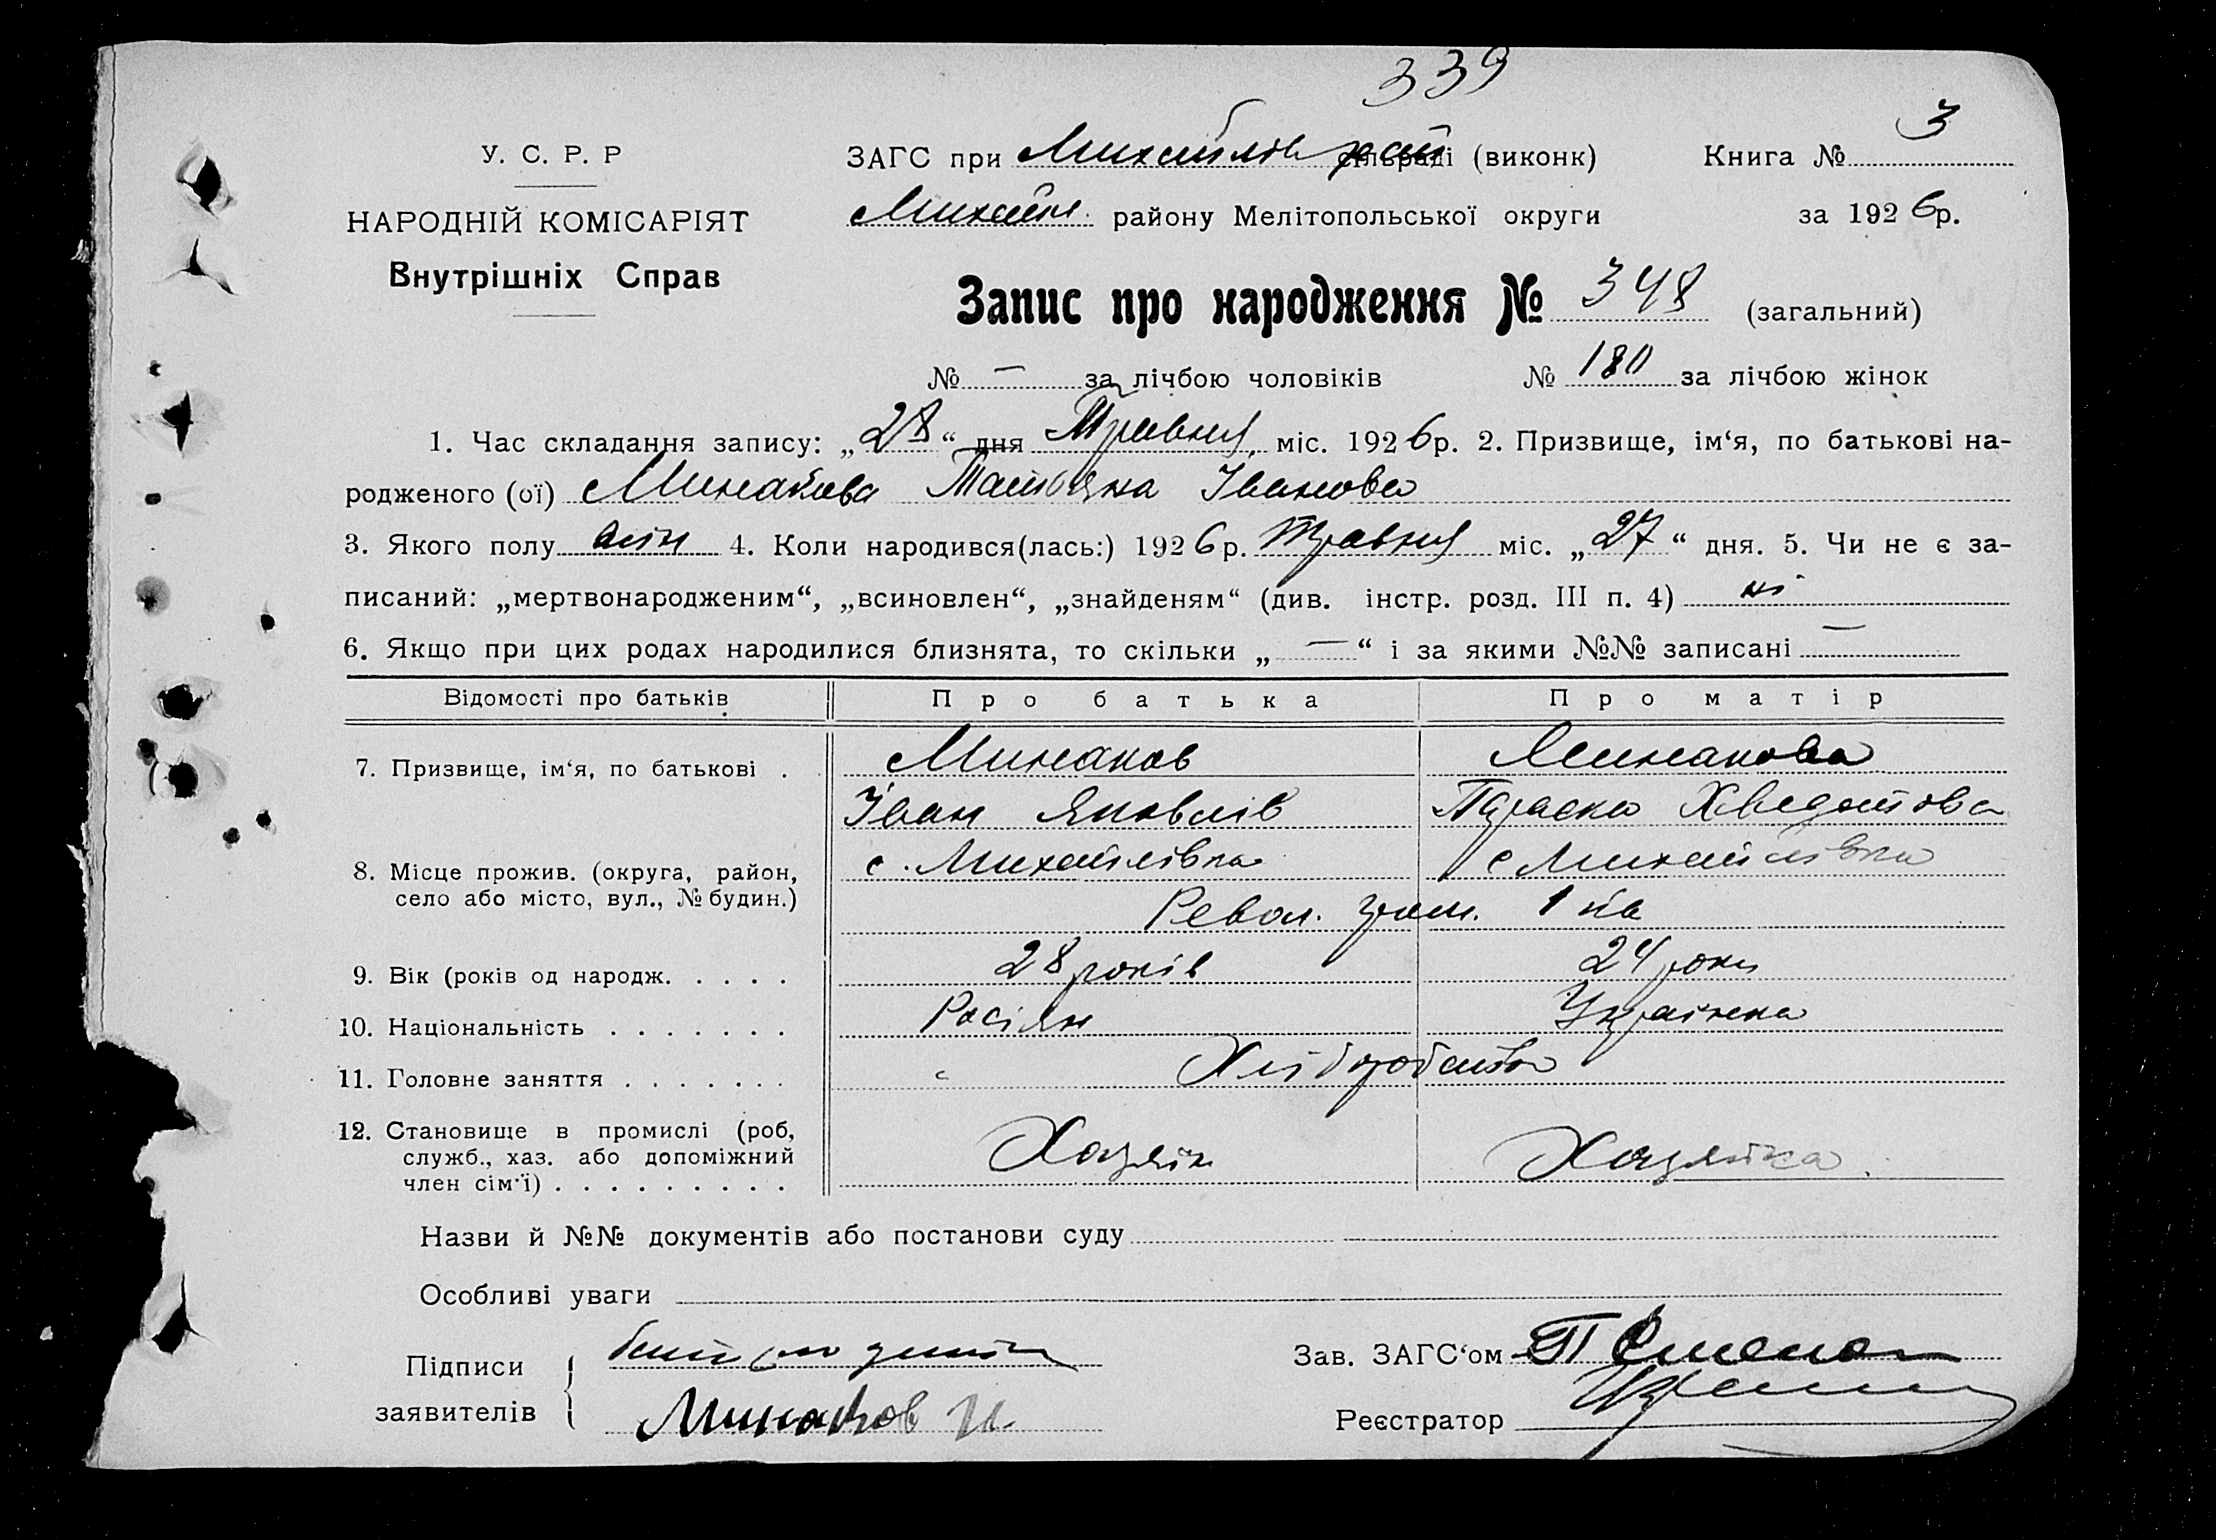 339
У. С. Р. Р
ЗАГС при Михайлів рай сільраді (виконк)
Книга № 3
НАРОДНІЙ КОМІСАРІЯТ
Михайл. району Мелітопольської округи
за 1926 р.
Внутрішніх Справ
Запис про народження № 348 (загальний)
№ — за лічбою чоловіків № 180 за лічбою жінок
1. Час складання запису: „28“ дня Травня міс. 1926 р. 2. Призвище, ім‘я, по батькові на-
родженого (ої) Минакова Татьяна Іванова
3. Якого полу жін 4. Коли народився(лась:) 1926 р. Травня міс. „27“ дня. 5. Чи не є за-
писаний: „мертвонародженим“, „всиновлен“, „знайденям“ (див. інстр. розд. III п. 4) ні
6. Якщо при цих родах народилися близнята, то скільки „—“ і за якими №№ записані —
Відомості про батьків Про батька Про матір
7. Призвище, ім‘я, по батькові . Минаков Минакова
Іван Яковлів Параска Хведотова
8. Місце прожив. (округа, район, с. Михайлівка с Михайлівка
село або місто, вул., № будин.) Револ. 1
9. Вік (років од народж. . . . . 28 років 24 роки
10. Національність . . . . . . . Росіян Українка
11. Головне заняття . . . . . . . Хліборобство
12. Становище в промислі (роб, служб., хаз. або допоміжний член сім‘ї) . . . . . . . . . Хазяін Хазяйка.
Назви й №№ документів або постанови суду
Особливі уваги
Підписи заявителів
Минаков И.
Зав. ЗАГС‘ом
Реєстратор